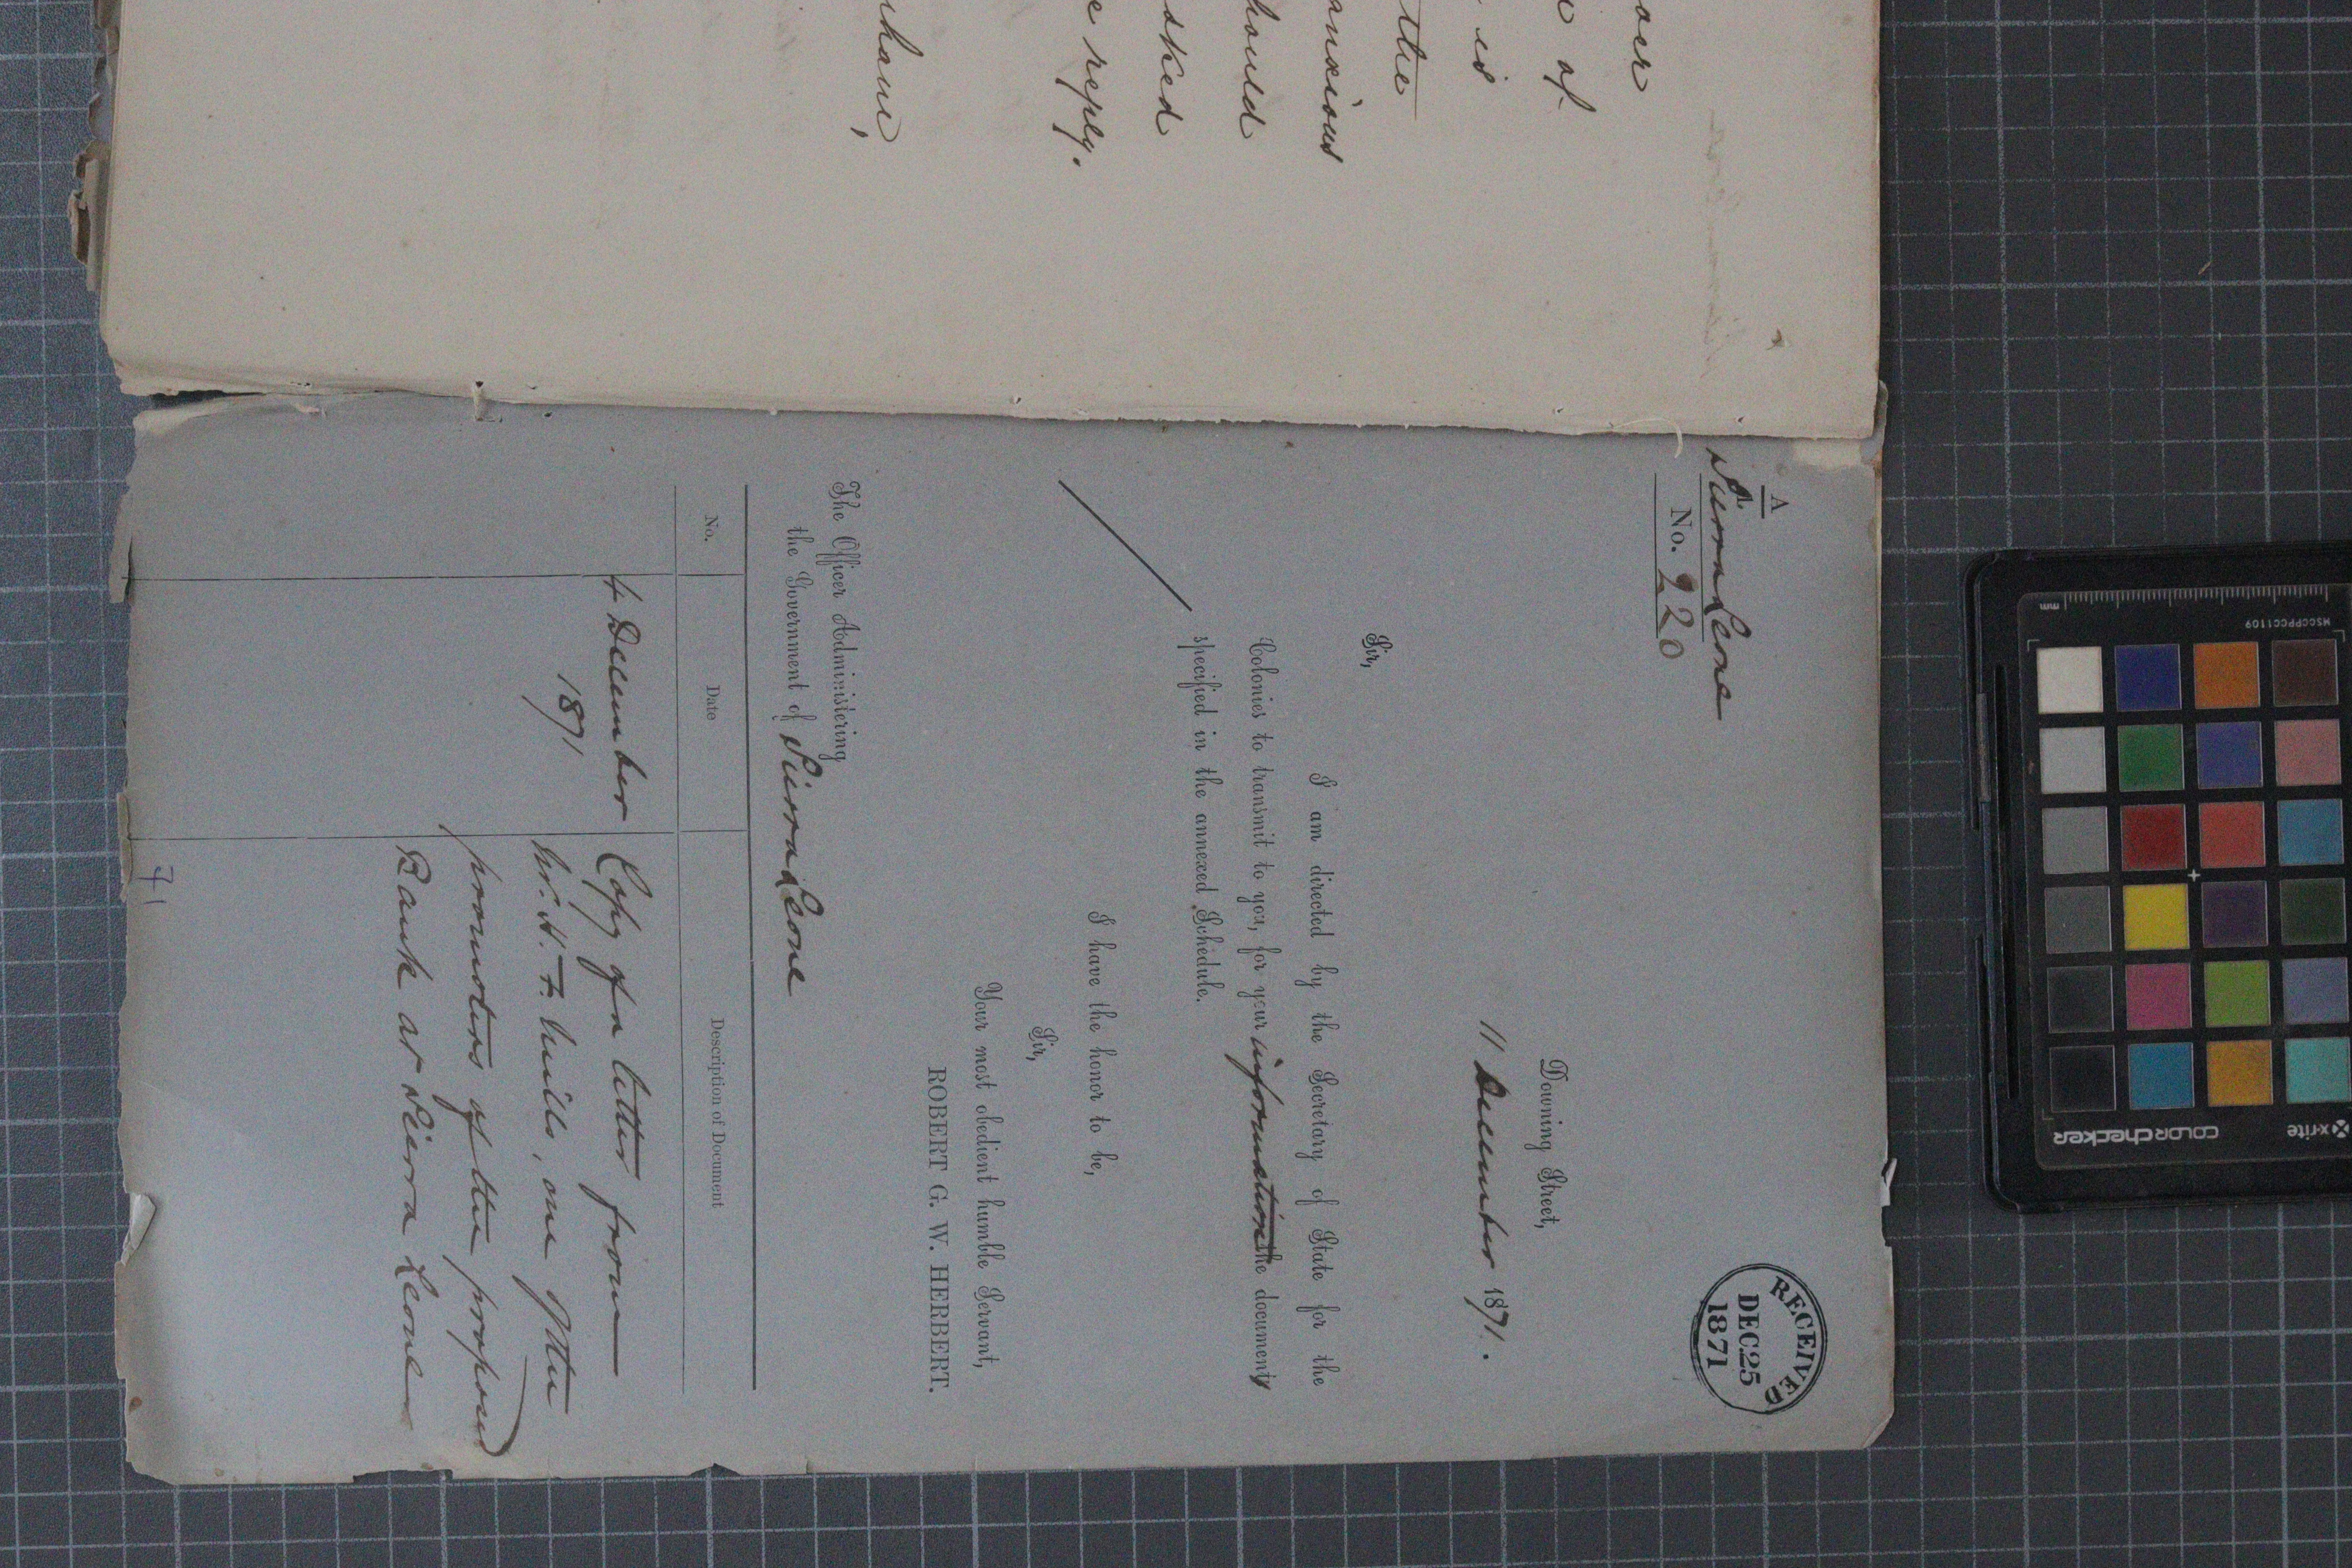 over
of
is
the
anxious
hould
sked
e reply.
A
Sierra Leone
No. 220
RECEIVED
DEC 25
1871
Downing Street,
11 December 1871.
Sir,
I am directed by the Secretary of State for the
Colonies to transmit to you, for your information the document
specified in the annexed Schedule.
I have the honor to be,
Sir,
Your most obedient humble Servant,
ROBERT G. W. HERBERT.
The Officer Administering
the Government of Sierra Leone
No. Date Description of Document
4 December Copy of a letter from
1871 Mr. H. F. Mills, one of the
promoters of the proposed
Bank at Sierra Leone
71
mm
MSCCPPCC1109
x-rite
COLORchecker